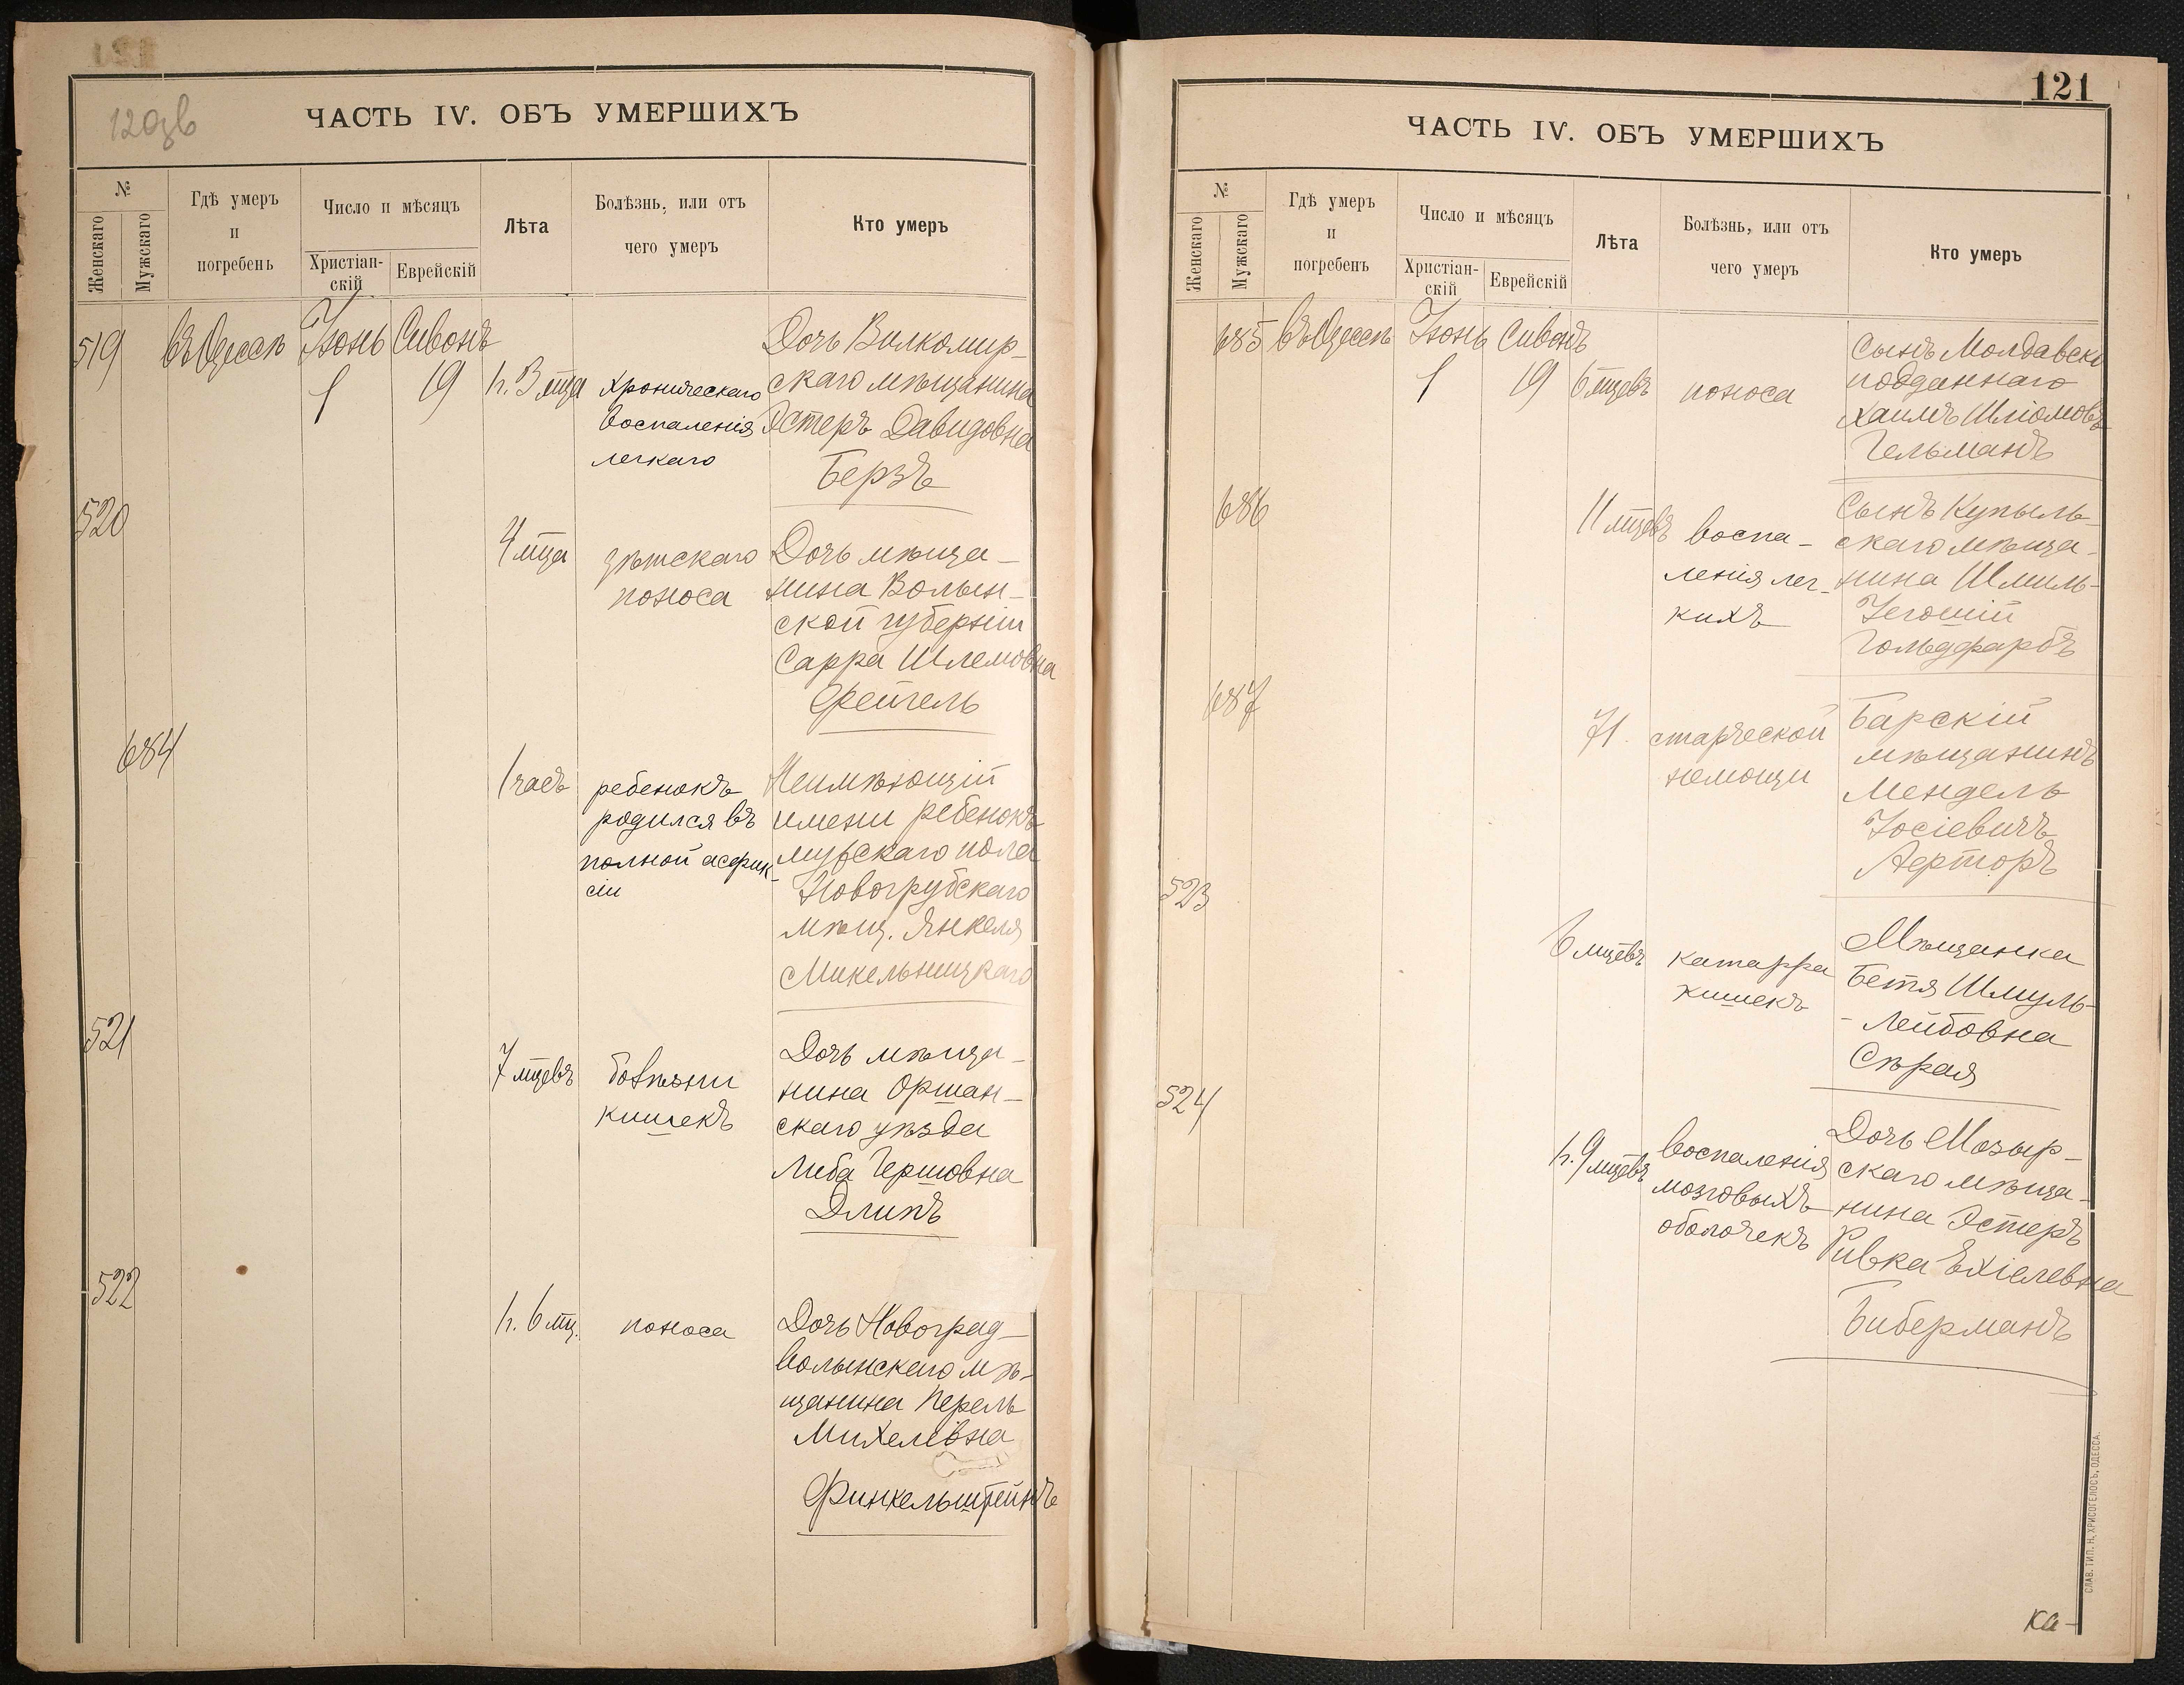 120зв
ЧАСТЬ IV. ОБЪ УМЕРШИХЪ
№
Женскаго
Мужскаго
Гдѣ умеръ
и
погребенъ
Число и мѣсяцъ
Христіан-
скій
Еврейскій
Лѣта
Болѣзнь, или отъ
чего умеръ
Кто умеръ
519
въ Одессѣ
Іюнь
1
Сивонъ
19
1 г. 3 мца
хроническаго
воспаленія
легкаго
Дочь Вилкомир-
скаго мѣщанина
Эстеръ Давидовна
Берзъ
520
4 мца
дѣтскаго
поноса
Дочь мѣща-
нина Волын-
ской губерніи
Сарра Шлемовна
Фейгель
684
1 часъ
ребенокъ
родился въ
полной асфик-
сіи
Неимѣющій
имени ребенокъ
мужскаго пола
мѣщ. Янкеля
521
7 мцевъ
болѣзни
кишекъ
Дочь мѣща-
нина Оршан-
скаго уѣзда
Либа Гершовна
522
6 мц.
поноса
Дочь Новоград-
волынскаго мѣ-
щанина Перель
Михелевна
Финкельштейнъ
121
ЧАСТЬ IV. ОБЪ УМЕРШИХЪ
№
Женскаго
Мужскаго
Гдѣ умеръ
и
погребенъ
Число и мѣсяцъ
Христіан-
скій
Еврейскій
Лѣта
Болѣзнь, или отъ
чего умеръ
Кто умеръ
685
въ Одессѣ
Іюнь
1
Сивонъ
19
6 мцевъ
поноса
Сынъ Молдавск
подданнаго
Хаимъ Шліомовъ
Гельманъ
686
11 мцевъ
воспа-
ленія лег-
кихъ
Сынъ Купыль-
скаго мѣща-
нина Шмиль-
Гольдфарбъ
687
71
старческой
немощи
Барскій
мѣщанинъ
Мендель
Іосіевичъ
523
6 мцевъ
катарра
кишекъ
Мѣщанка
Бетя Шмуль-
-Лейбовна
Сѣрая
524
9 мцевъ
воспаленія
мозговыхъ
оболочекъ
Дочь Мозыр-
скаго мѣща-
нина Эстеръ
Ривка Ехіелевна
Биберманъ
СЛАВ. ТИП. Н. ХРИСОГЕЛОСЪ, ОДЕССА.
Ка-